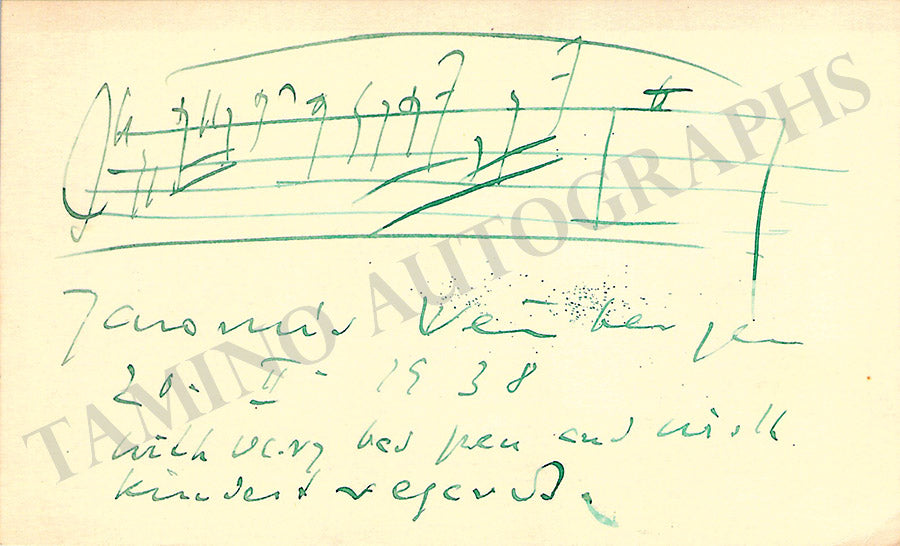 TAMINO AUTOGRAPHS
Jaromir Weinberger
20. II - 1938
with very bad pen and with
kindest regards.